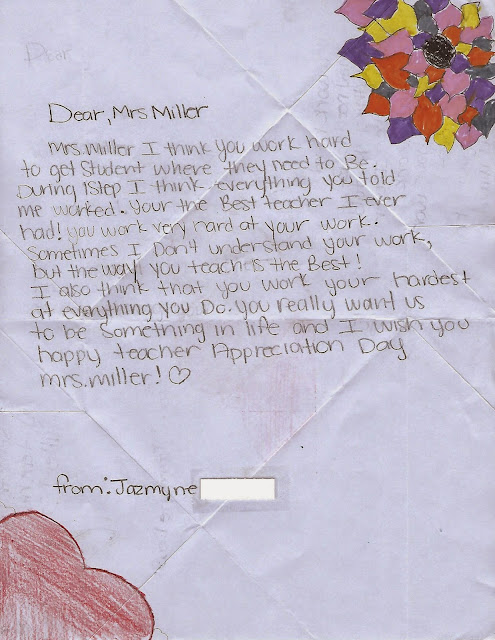 Dear
Dear, Mrs Miller
Mrs. miller I think you work hard
to get Student where they need to Be.
During ISTEP I think everything you told
me worked. Your the Best teacher I ever
had! you work very hard at your work.
Sometimes I Don't understand your work,
but the way you teach is the Best!
I also think that you work your hardest
at everything you Do. you really want us
to be Something in life and I wish you
happy teacher Appreciation Day
mrs. miller! ♡
from: Jazmyne